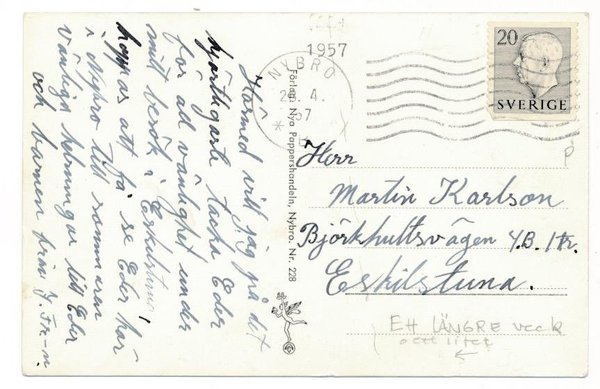 Härmed vill jag på det
hjärtligaste tacka Eder
för all vänlighet under
mitt besök i Eskilstuna!
hoppas att få se Eder här
i Nybro till sommaren
Vänliga hälsningar till Eder
och barnen från
Förlag: Nya Pappershandeln, Nybro. Nr. 228
1957
NYBRO
4.
57
20
SVERIGE
Herr
Martin Karlson
Björkhultsvägen 4B. 1 tr.
Eskilstuna.
Ett LÄNGRE veck
o ett litet